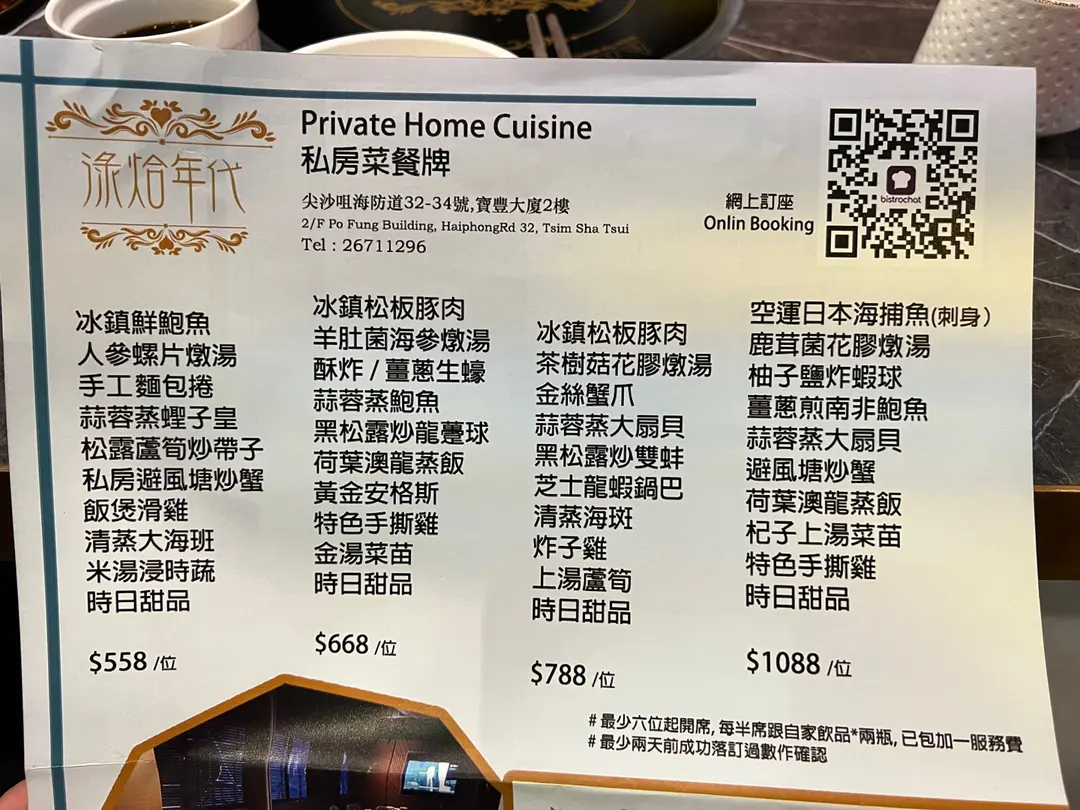 淥焅年代
Private Home Cuisine
私房菜餐牌
尖沙咀海防道32-34號,寶豐大廈2樓
2/F Po Fung Building, HaiphongRd 32, Tsim Sha Tsui
Tel : 26711296
網上訂座
Onlin Booking
bistrochat
冰鎮鮮鮑魚
人參螺片燉湯
手工麵包捲
蒜蓉蒸蟶子皇
松露蘆筍炒帶子
私房避風塘炒蟹
飯煲滑雞
清蒸大海班
米湯浸時蔬
時日甜品
$558 /位
冰鎮松板豚肉
羊肚菌海參燉湯
酥炸 / 薑蔥生蠔
蒜蓉蒸鮑魚
黑松露炒龍躉球
荷葉澳龍蒸飯
黃金安格斯
特色手撕雞
金湯菜苗
時日甜品
$668 /位
冰鎮松板豚肉
茶樹菇花膠燉湯
金絲蟹爪
蒜蓉蒸大扇貝
黑松露炒雙蚌
芝士龍蝦鍋巴
清蒸海斑
炸子雞
上湯蘆筍
時日甜品
$788 /位
空運日本海捕魚(刺身)
鹿茸菌花膠燉湯
柚子鹽炸蝦球
薑蔥煎南非鮑魚
蒜蓉蒸大扇貝
避風塘炒蟹
荷葉澳龍蒸飯
杞子上湯菜苗
特色手撕雞
時日甜品
$1088 /位
# 最少六位起開席, 每半席跟自家飲品*兩瓶, 已包加一服務費
# 最少兩天前成功落訂過數作確認